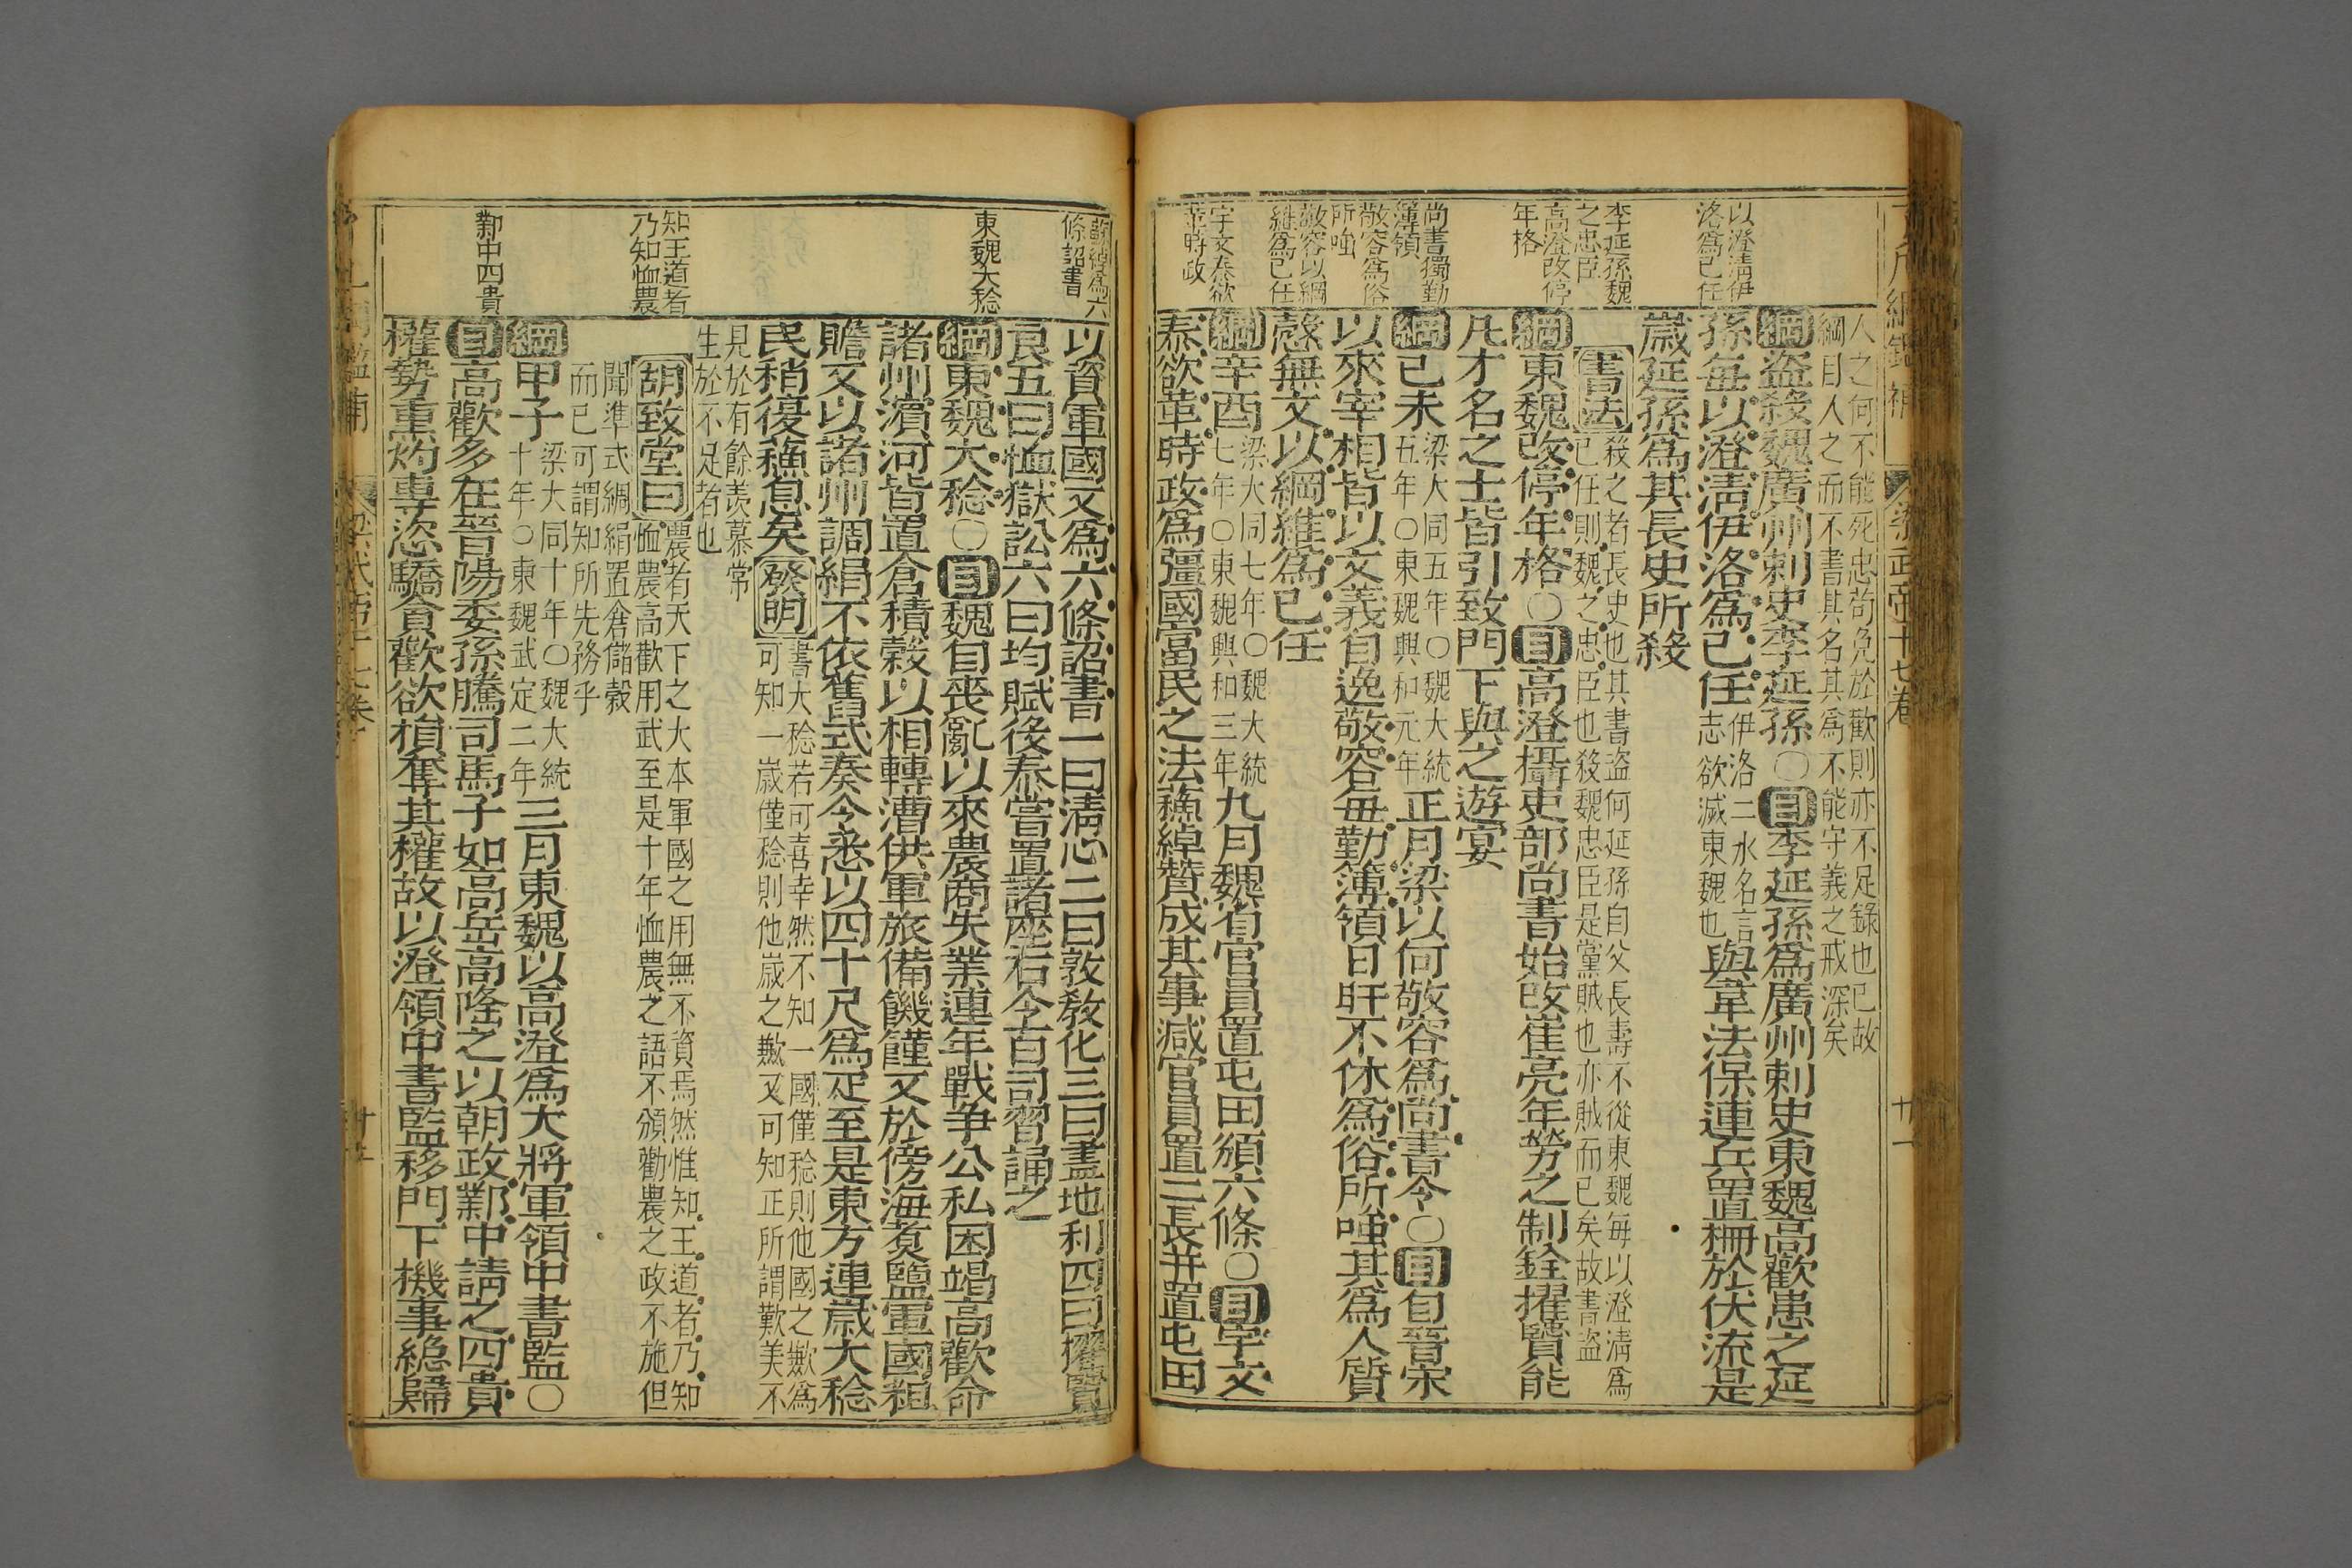 以澄清伊
洛爲己任
李延孫魏
之忠臣
高澄改停
年格
尚書獨勤
簿領
敬容爲俗
所嗤
敬容以綱
維爲己任
宇文泰欲
革時政
人之何不能死忠苟免於歡則亦不足錄也已故
綱目人之而不書其名其爲不能守義之戒深矣
綱盜殺魏廣州刺史李延孫〇目李延孫爲廣州刺史東魏高歡患之延
孫每以澄淸伊洛爲己任伊洛二水名言志欲滅東魏也與韋法保連兵置柵於伏流是
歲延孫爲其長史所殺
書法殺之者長史也其書盜何延孫自父長壽不從東魏每以澄淸爲
已任則魏之忠臣也殺魏忠臣是黨賊也亦賊而已矣故書盜
綱東魏改停年格〇目高澄攝吏部尚書始改崔亮年勞之制銓擢賢能
凡才名之士皆引致門下與之遊宴
綱己未梁大同五年〇魏大統五年〇東魏興和元年正月梁以何敬容爲尚書令〇目自晉宋
以來宰相皆以文義自逸敬容毎勤簿領日旰不休爲俗所嗤其爲人質
慤無文以綱維爲己任
綱辛酉梁大同七年〇魏大統七年〇東魏興和三年九月魏省官員置屯田頒六條〇目宇文
泰欲革時政爲彊國富民之法蘇綽贊成其事減官員置二長并置屯田
條詔書
東魏大稔
知王道者
乃知恤農
鄴中四貴
以資軍國又爲六條詔書一曰淸心二曰敦敎化三曰盡地利四曰擢賢
良五曰恤獄訟六曰均賦後泰嘗置諸座右令百司習誦之
綱東魏大稔〇目魏自喪亂以來農商失業連年戰争公私困竭高歡命
諸州濵河皆置倉積穀以相轉漕供軍旅備饑饉又於傍海煑鹽軍國粗
贍又以諸州調絹不依舊式奏令悉以四十尺爲疋至是東方連歲大稔
民稍復蘇息矣發明書大稔若可喜幸然不知一國僅稔則他國之歉爲可知一歲僅稔則他歲之歉又可知正所謂歎美不
見於有餘羨慕常
生於不足者也
胡致堂曰農者天下之大本軍國之用無不資焉然惟知王道者乃知恤農高歡用武至是十年恤農之語不頒勸農之政不施但
聞準式綢絹置倉儲穀
而已可謂知所先務乎
綱甲子梁大同十年〇魏大統十年〇東魏武定二年三月東魏以高澄爲大將軍領中書監〇
目高歡多在晉陽委孫騰司馬子如高岳高隆之以朝政鄴中請之四貴
權勢熏灼專恣驕貪歡欲損奪其權故以澄領中書監移門下機事緫歸